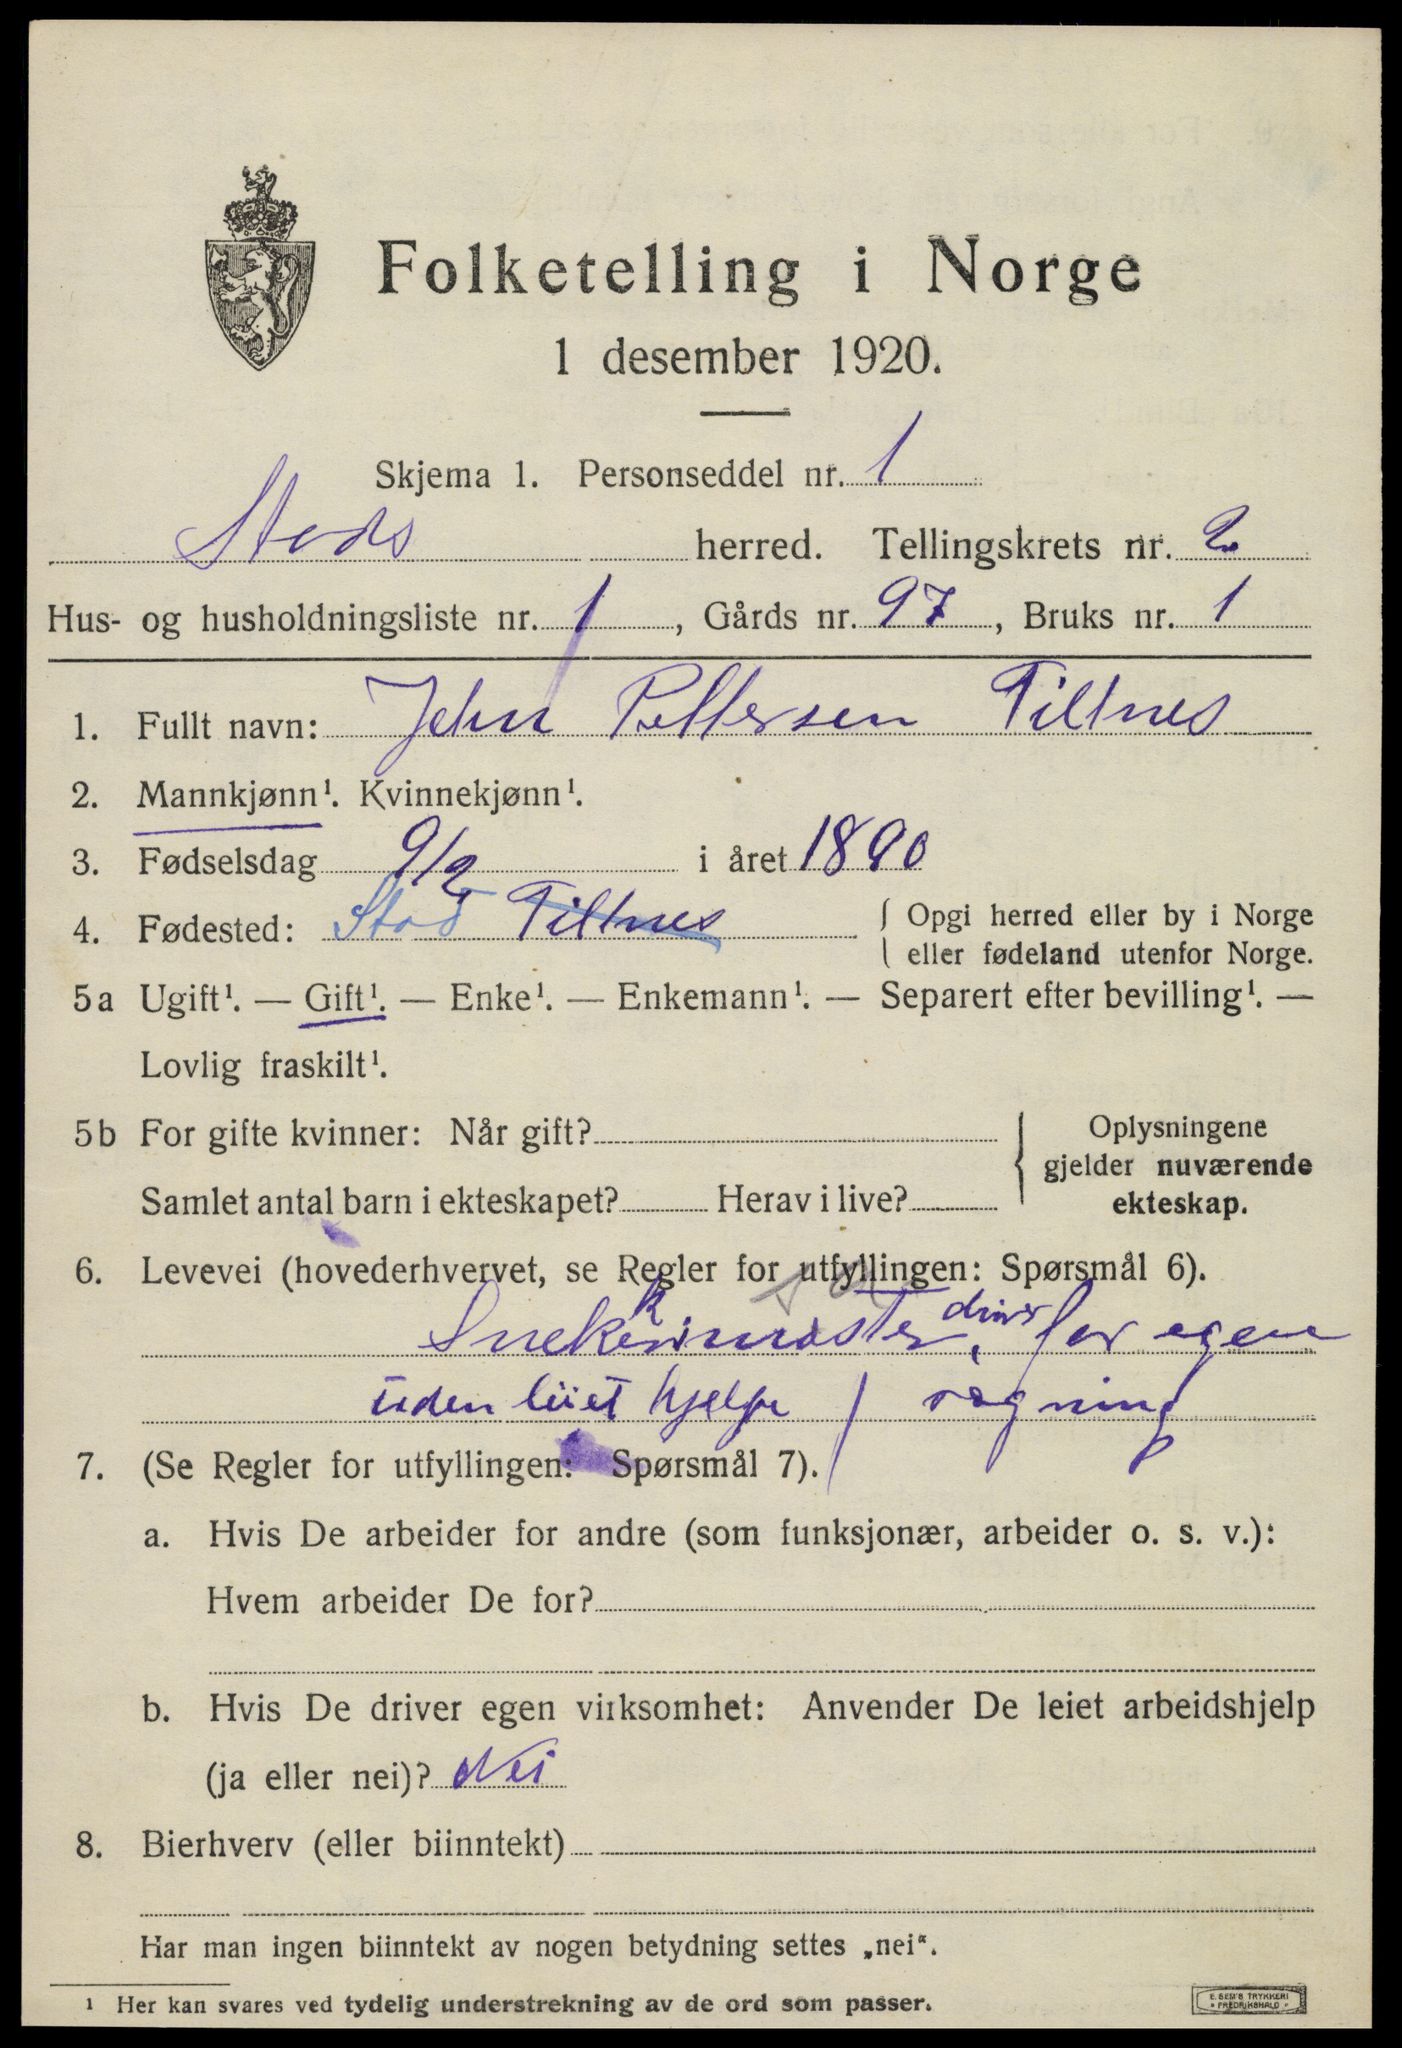 Folketelling i Norge
1 desember 1920.
Skjema 1. Personseddel nr. 1
Stods herred. Tellingskrets nr. 2
Hus- og husholdningsliste nr. 1, Gårds nr. 97, Bruks nr. 1
1. Fullt navn: John Pettersen Tiltnes
2. Mannkjønn¹. Kvinnekjønn¹.
3. Fødselsdag 9/2 i året 1890
4. Fødested: Stod Tiltnes { Opgi herred eller by i Norge
eller fødeland utenfor Norge.
5a Ugift¹. — Gift¹. — Enke¹. — Enkemann¹. — Separert efter bevilling¹. —
Lovlig fraskilt¹.
5b For gifte kvinner: Når gift? } Oplysningene
gjelder nuværende
Samlet antal barn i ekteskapet? Herav i live? ekteskap.
6. Levevei (hovederhvervet, se Regler for utfyllingen: Spørsmål 6).
Snekkermester, driver for egen
uden leiet hjelp / regning
7. (Se Regler for utfyllingen: Spørsmål 7).
a. Hvis De arbeider for andre (som funksjonær, arbeider o. s. v.):
Hvem arbeider De for?
b. Hvis De driver egen virksomhet: Anvender De leiet arbeidshjelp
(ja eller nei)? Nei
8. Bierhverv (eller biinntekt)
Har man ingen biinntekt av nogen betydning settes „nei“.
¹ Her kan svares ved tydelig understrekning av de ord som passer.
E. SEM'S TRYKKERI
FREDRIKSHALD